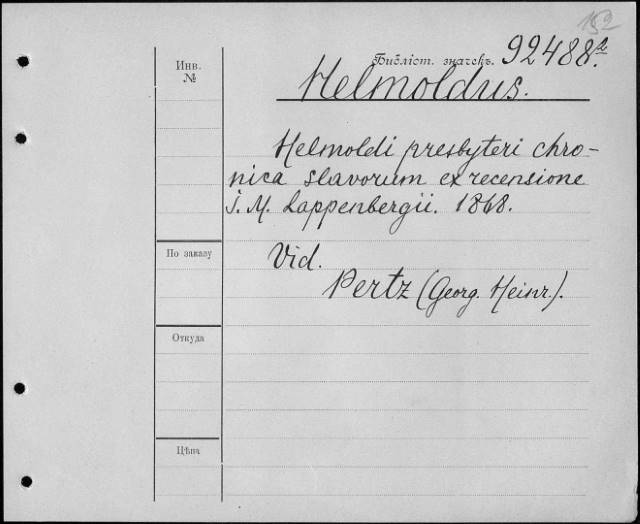 152
Инв.
№
Библіот. значекъ. 92488а.
Helmoldus.
Helmoldi presbyteri chro-
nica slavorum ex recensione
I. M. Lappenbergii. 1868.
По заказу
Vid.
Pertz (Georg. Heinr.).
Откуда
Цѣна